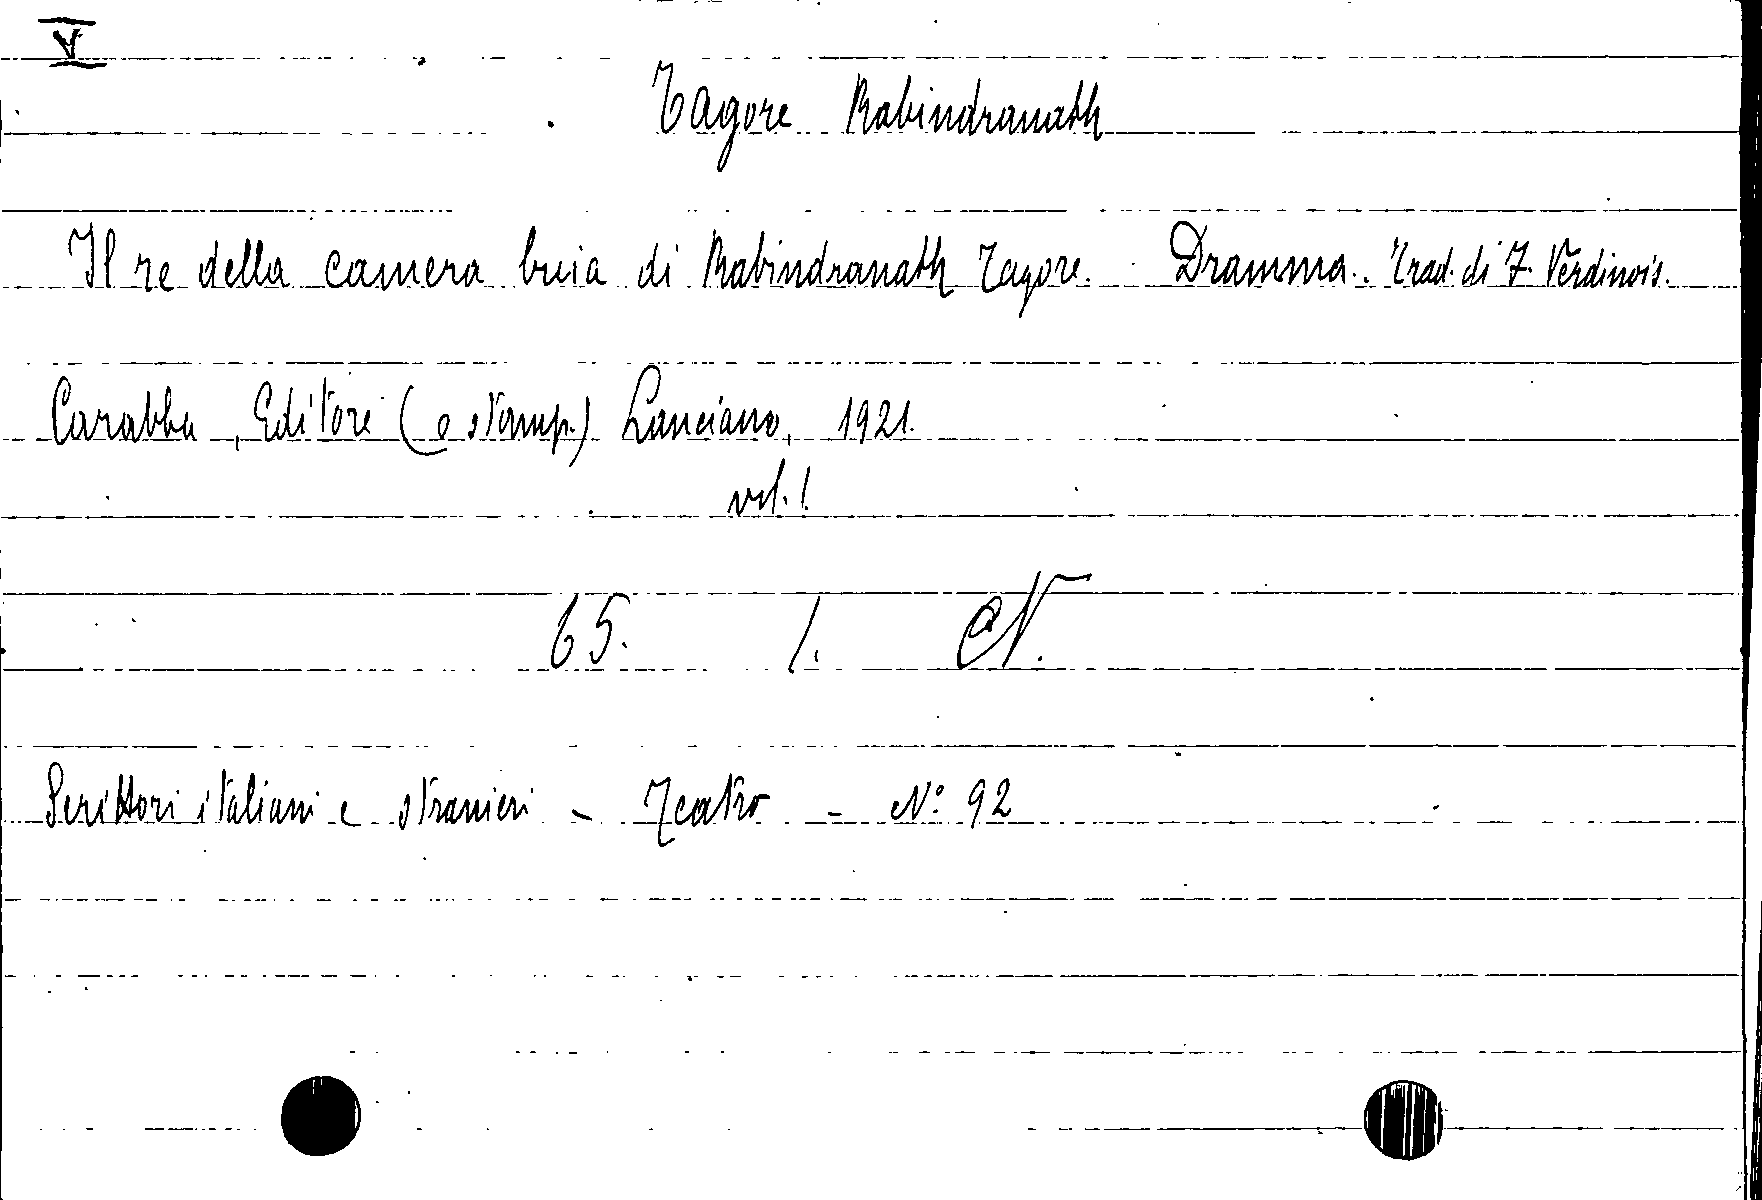 V
Tagore Rabindranath
Il re della camera buia di Rabindranath Tagore. Dramma. Trad. di F. Verdinois.
Carabba, Editore (e stamp.) Lanciano, 1921.
vol. 1
65. 1. N.
Scrittori italiani e stranieri - Teatro - No. 92